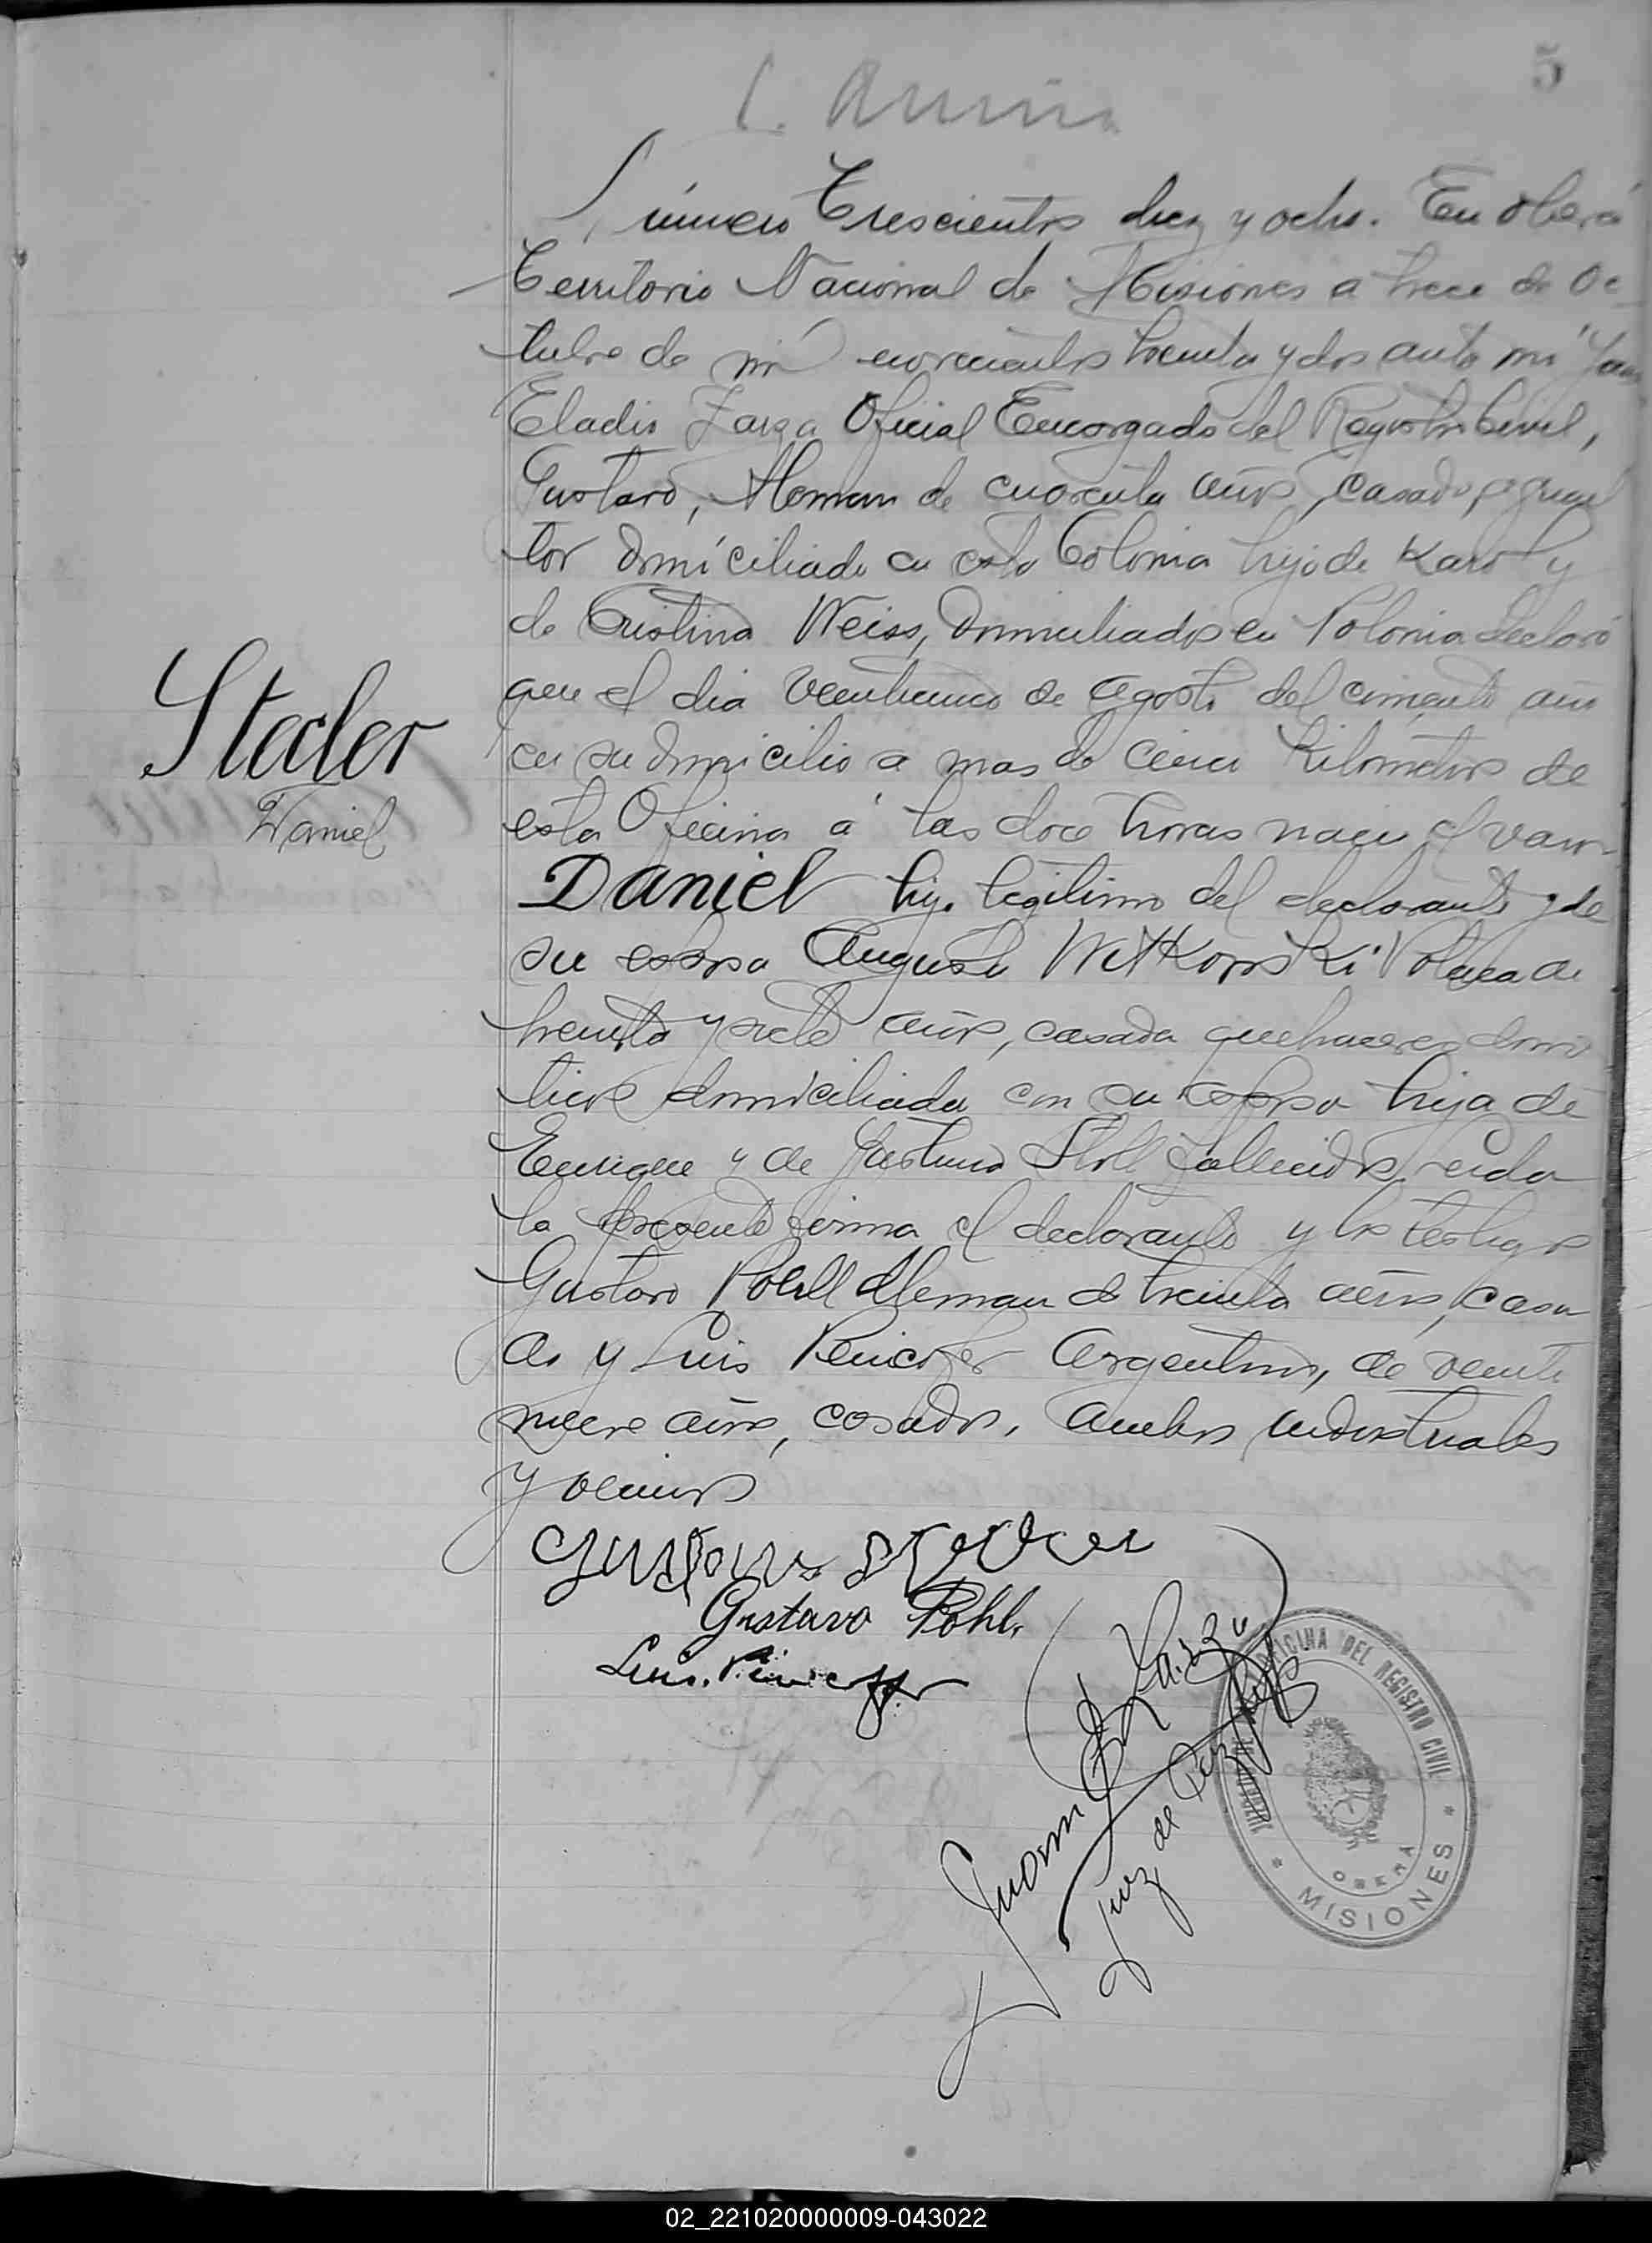 5
Número Trescientos diez y ocho. En Oberá
Territorio Nacional de Misiones a trece de Oc
tubre de mil novecientos treinta y dos ante mi Juan
Eladio Zarza Oficial Encargado del Registro Civil,
Gustavo, Aleman de cuarenta años, casado, agricul
tor domiciliado en esta Colonia hijo de Karol y
de Cristina Weiss, domiciliados en Polonia declaró
que el dia veintiuno de Agosto del corriente año
en su domicilio a mas de cinco Kilometros de
esta Oficina a las doce horas nacio el varon
Stecler
Daniel
DANIEL hijo legitimo del declarante y de
su esposa Augusta Witkowski Polaca de
treinta y siete años, casada quehaceres domes
ticos domiciliada con su esposo hija de
Enrique y de Justina Stoll fallecidos, leida
la presente firma el declarante y los testigos
Gustavo Pohll Aleman de treinta años, casa
do y Luis Argentino, de veinti
nueve años, casado, ambos industriales
y vecinos
Gustavo Pohl.
Luis.
Juan E Zarza
Juez de Paz
OFICINA DEL REGISTRO CIVIL
OBERÁ
* MISIONES *
02_221020000009-043022